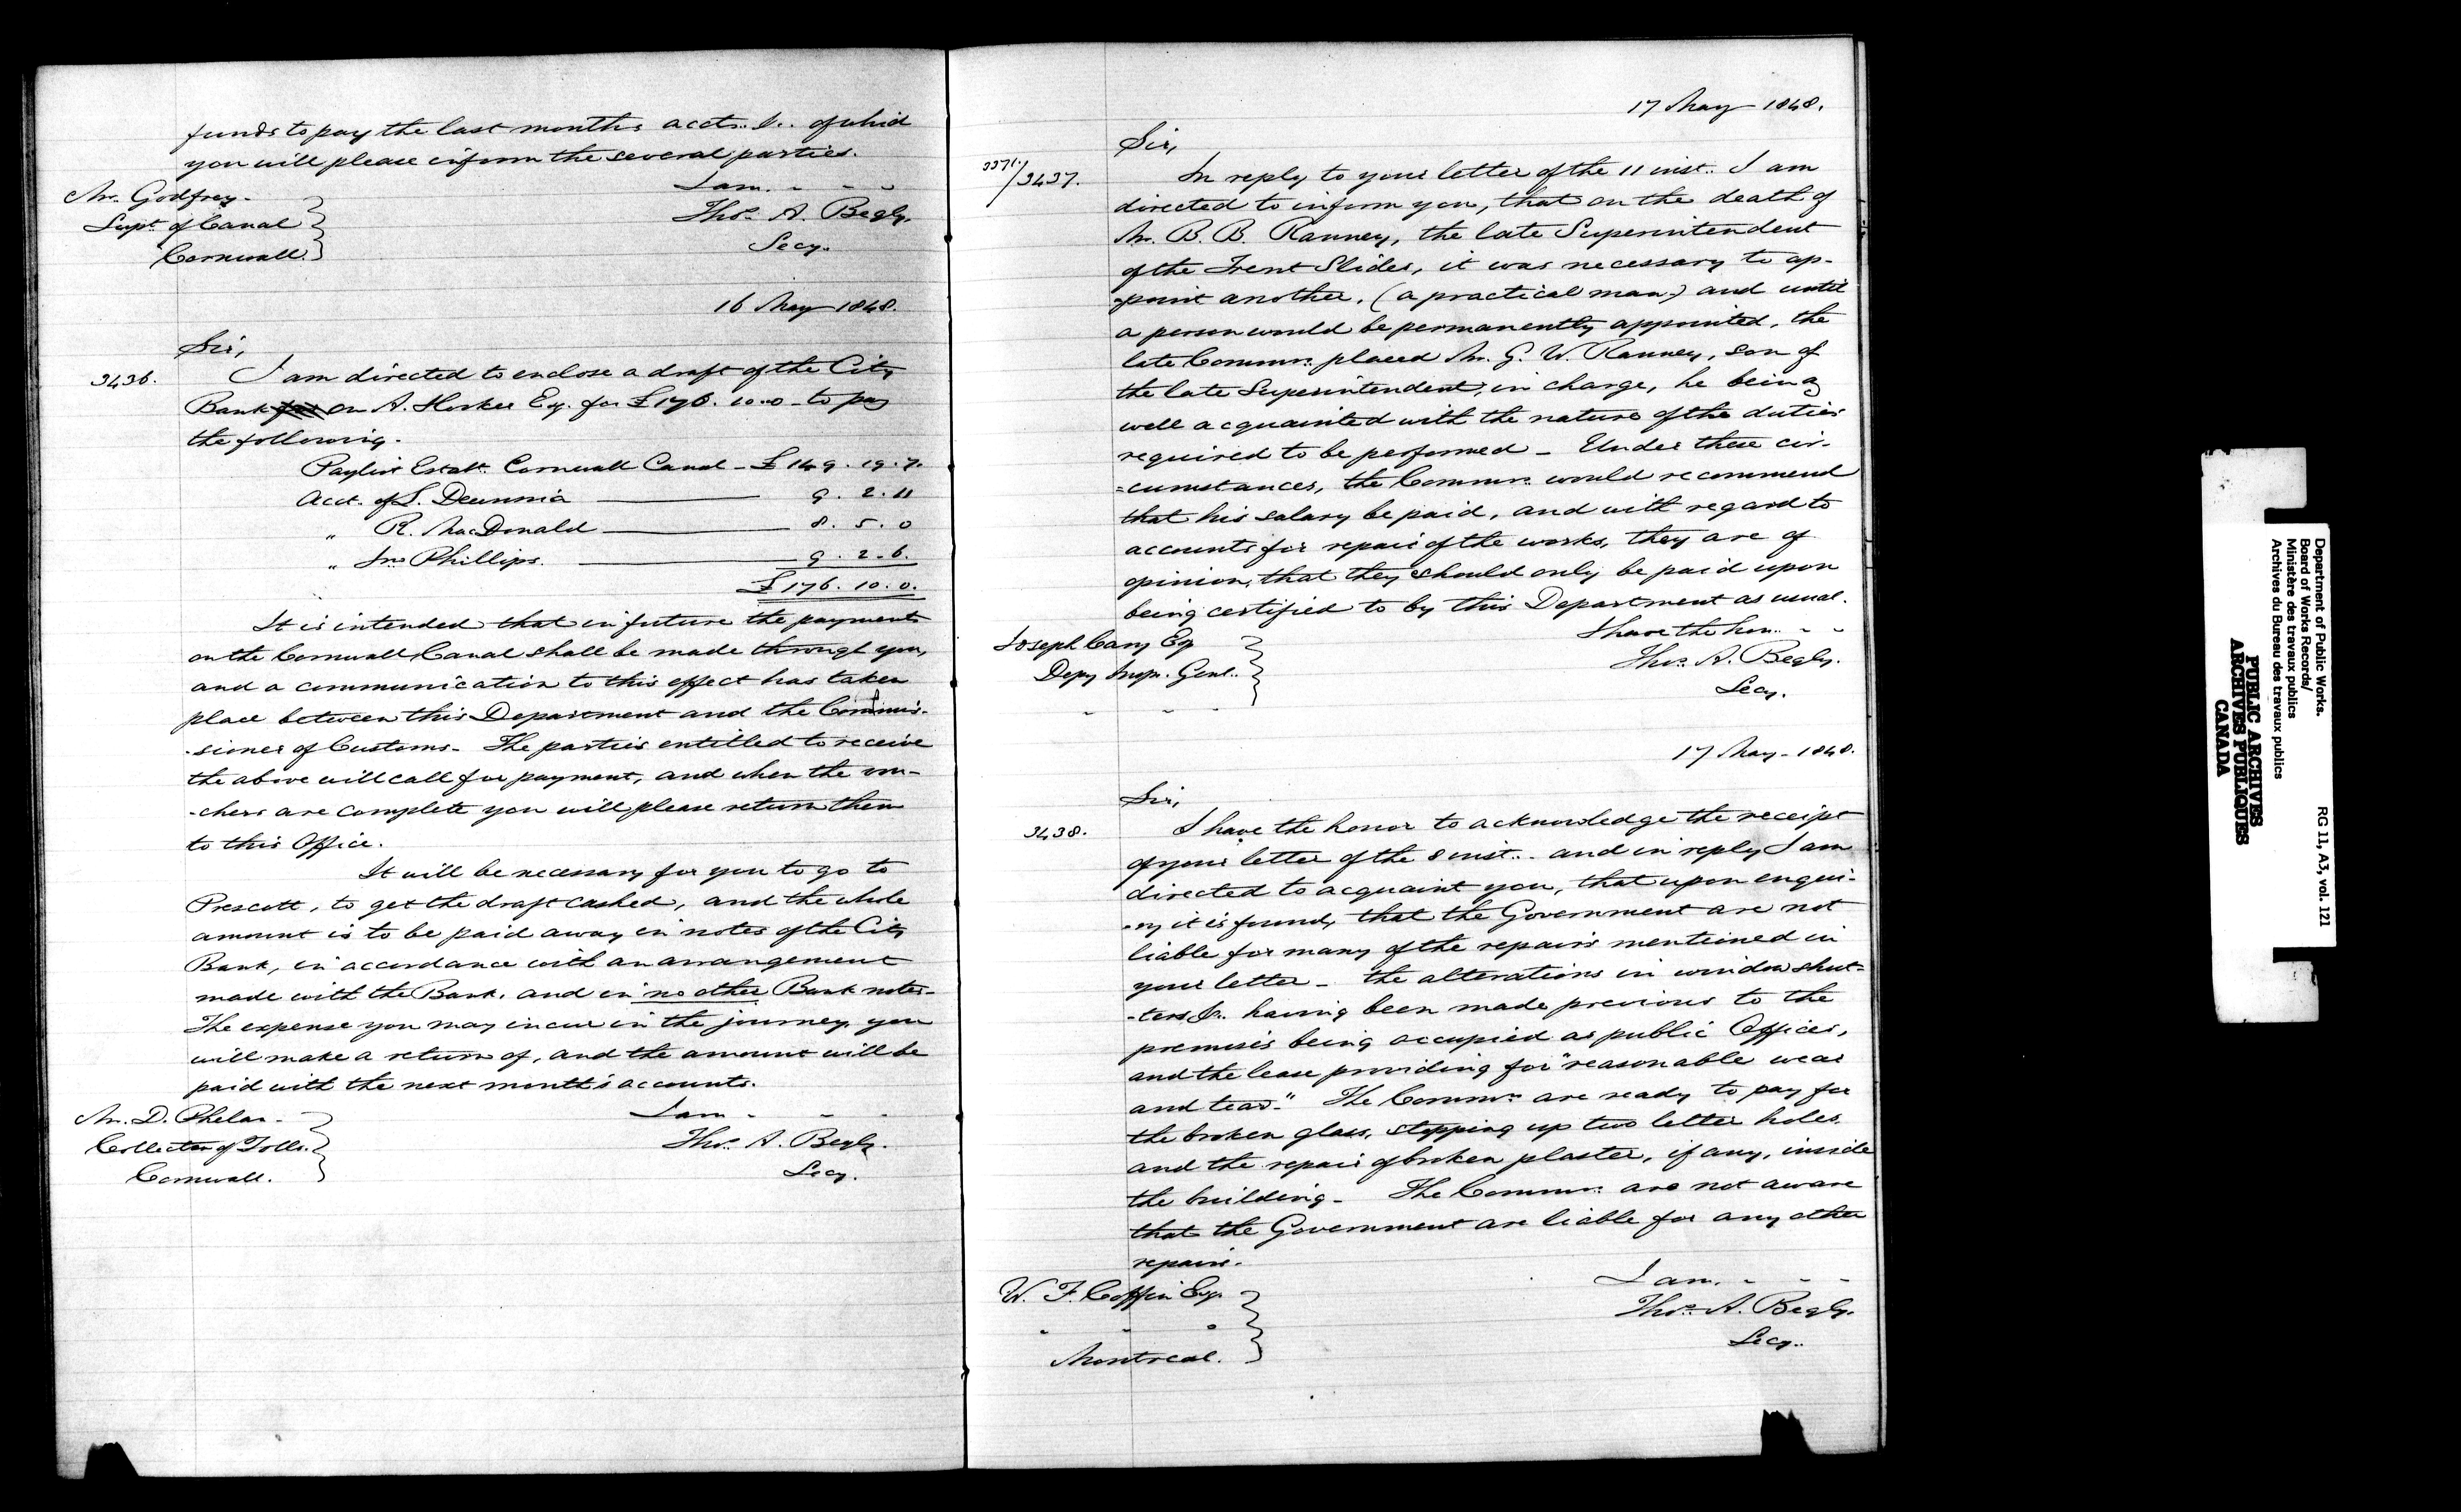 funds to pay the last months accts. &c. of which
you will please inform the several parties.
I am. - - -
Mr. Godfrey. Thos. A. Begly.
Supt. of Canal Secy.
Cornwall.
16 May 1848.
Sir,
3436. I am directed to enclose a draft of the City
Bank on A. Hooker Esq. for £176.10.0 - to pay
the following.
Paylist Estabt. Cornwall Canal - £149.19.7.
Acct. of L. 9.2.11
" R. MacDonald 8.5.0
" Jno Phillips. 9.2.6.
£176.10.0.
It is intended that in future the payments
on the Cornwall Canal shall be made through you,
and a communication to this effect has taken
place between this Department and the Commis-
-sioner of Customs - The parties entitled to receive
the above will call for payment, and when the vou-
-chers are complete you will please return them
to this Office.
It will be necessary for you to go to
Prescott, to get the draft cashed, and the whole
amount is to be paid away in notes of the City
Bank, in accordance with an arrangement
made with the Bank, and in no other Bank notes -
The expense you may incur in the journey you
will make a return of, and the amount will be
paid with the next month's accounts.
Mr. D. Phelan - I am - - -
Collector of Tolls. Thos. A. Begly.
Cornwall. Secy.
17 May 1848.
Sir,
3371/3437. In reply to your letter of the 11 inst. I am
directed to inform you, that on the death of
Mr. B. B. Ranney, the late Superintendent
of the Trent Slides, it was necessary to ap-
-point another, (a practical man,) and until
a person would be permanently appointed, the
late Commrs. placed Mr. G. W. Ranney, son of
the late Superintendent, in charge, he being
well acquainted with the nature of the duties
required to be performed - Under these cir-
=cumstances, the Commrs. would recommend
that his salary be paid, and with regard to
accounts for repair of the works, they are of
opinion, that they should only be paid upon
being certified to by this Department as usual.
Joseph Cary Esq I have the hon. - -
Depy Inspr. Genl. Thos. A. Begly.
- - - Secy.
17 May - 1848.
Sir,
3438. I have the honor to acknowledge the receipt
of your letter of the 8 inst. and in reply I am
directed to acquaint you, that upon enqui-
-ry it is found, that the Government are not
liable for many of the repairs mentioned in
your letter - the alterations in window shut=
-ters &c. having been made previous to the
premises being occupied as public Offices,
and the lease providing for "reasonable wear
and tear." The Commrs. are ready to pay for
the broken glass, stopping up two letter holes,
and the repair of broken plaster, if any, inside
the building - The Commrs. are not aware
that the Government are liable for any other
repairs.
W. F. Coffin Esq. I am. - - -
- - - Thos. A. Begly.
Montreal. Secy.
Department of Public Works.
Board of Works Records/
Ministère des travaux publics
Archives du Bureau des travaux publics
RG 11, A3, vol. 121
PUBLIC ARCHIVES
ARCHIVES PUBLIQUES
CANADA